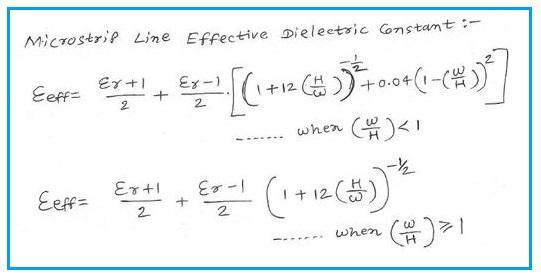 Microstrip Line Effective Dielectric Constant :-
Eeff= (Ɛr+1)/2 + (Ɛr-1)/2 . [(1+12(H/W))^(-1/2) +0.04(1-(W/H))^2]
....... when (W/H)<1
Eeff= (Ɛr+1)/2 + (Ɛr-1)/2 (1+12(H/W))^(-1/2)
....... when (W/H)⩾1